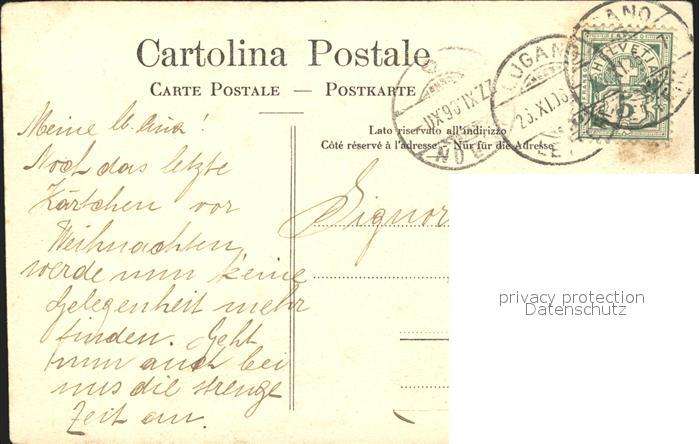 Cartolina Postale
CARTE POSTALE — POSTKARTE
Lato riservato all'indirizzo
Côté réservé à l'adresse — Nur für die Adresse
LUGANO
HELVETIA
5
Meine lb.
Noch das letzte
Kärtchen vor
Weihnachten,
werde nun keine
Gelegenheit mehr
finden. Geht
nun auch bei
uns die strenge
Zeit an.
Signor
privacy protection
Datenschutz